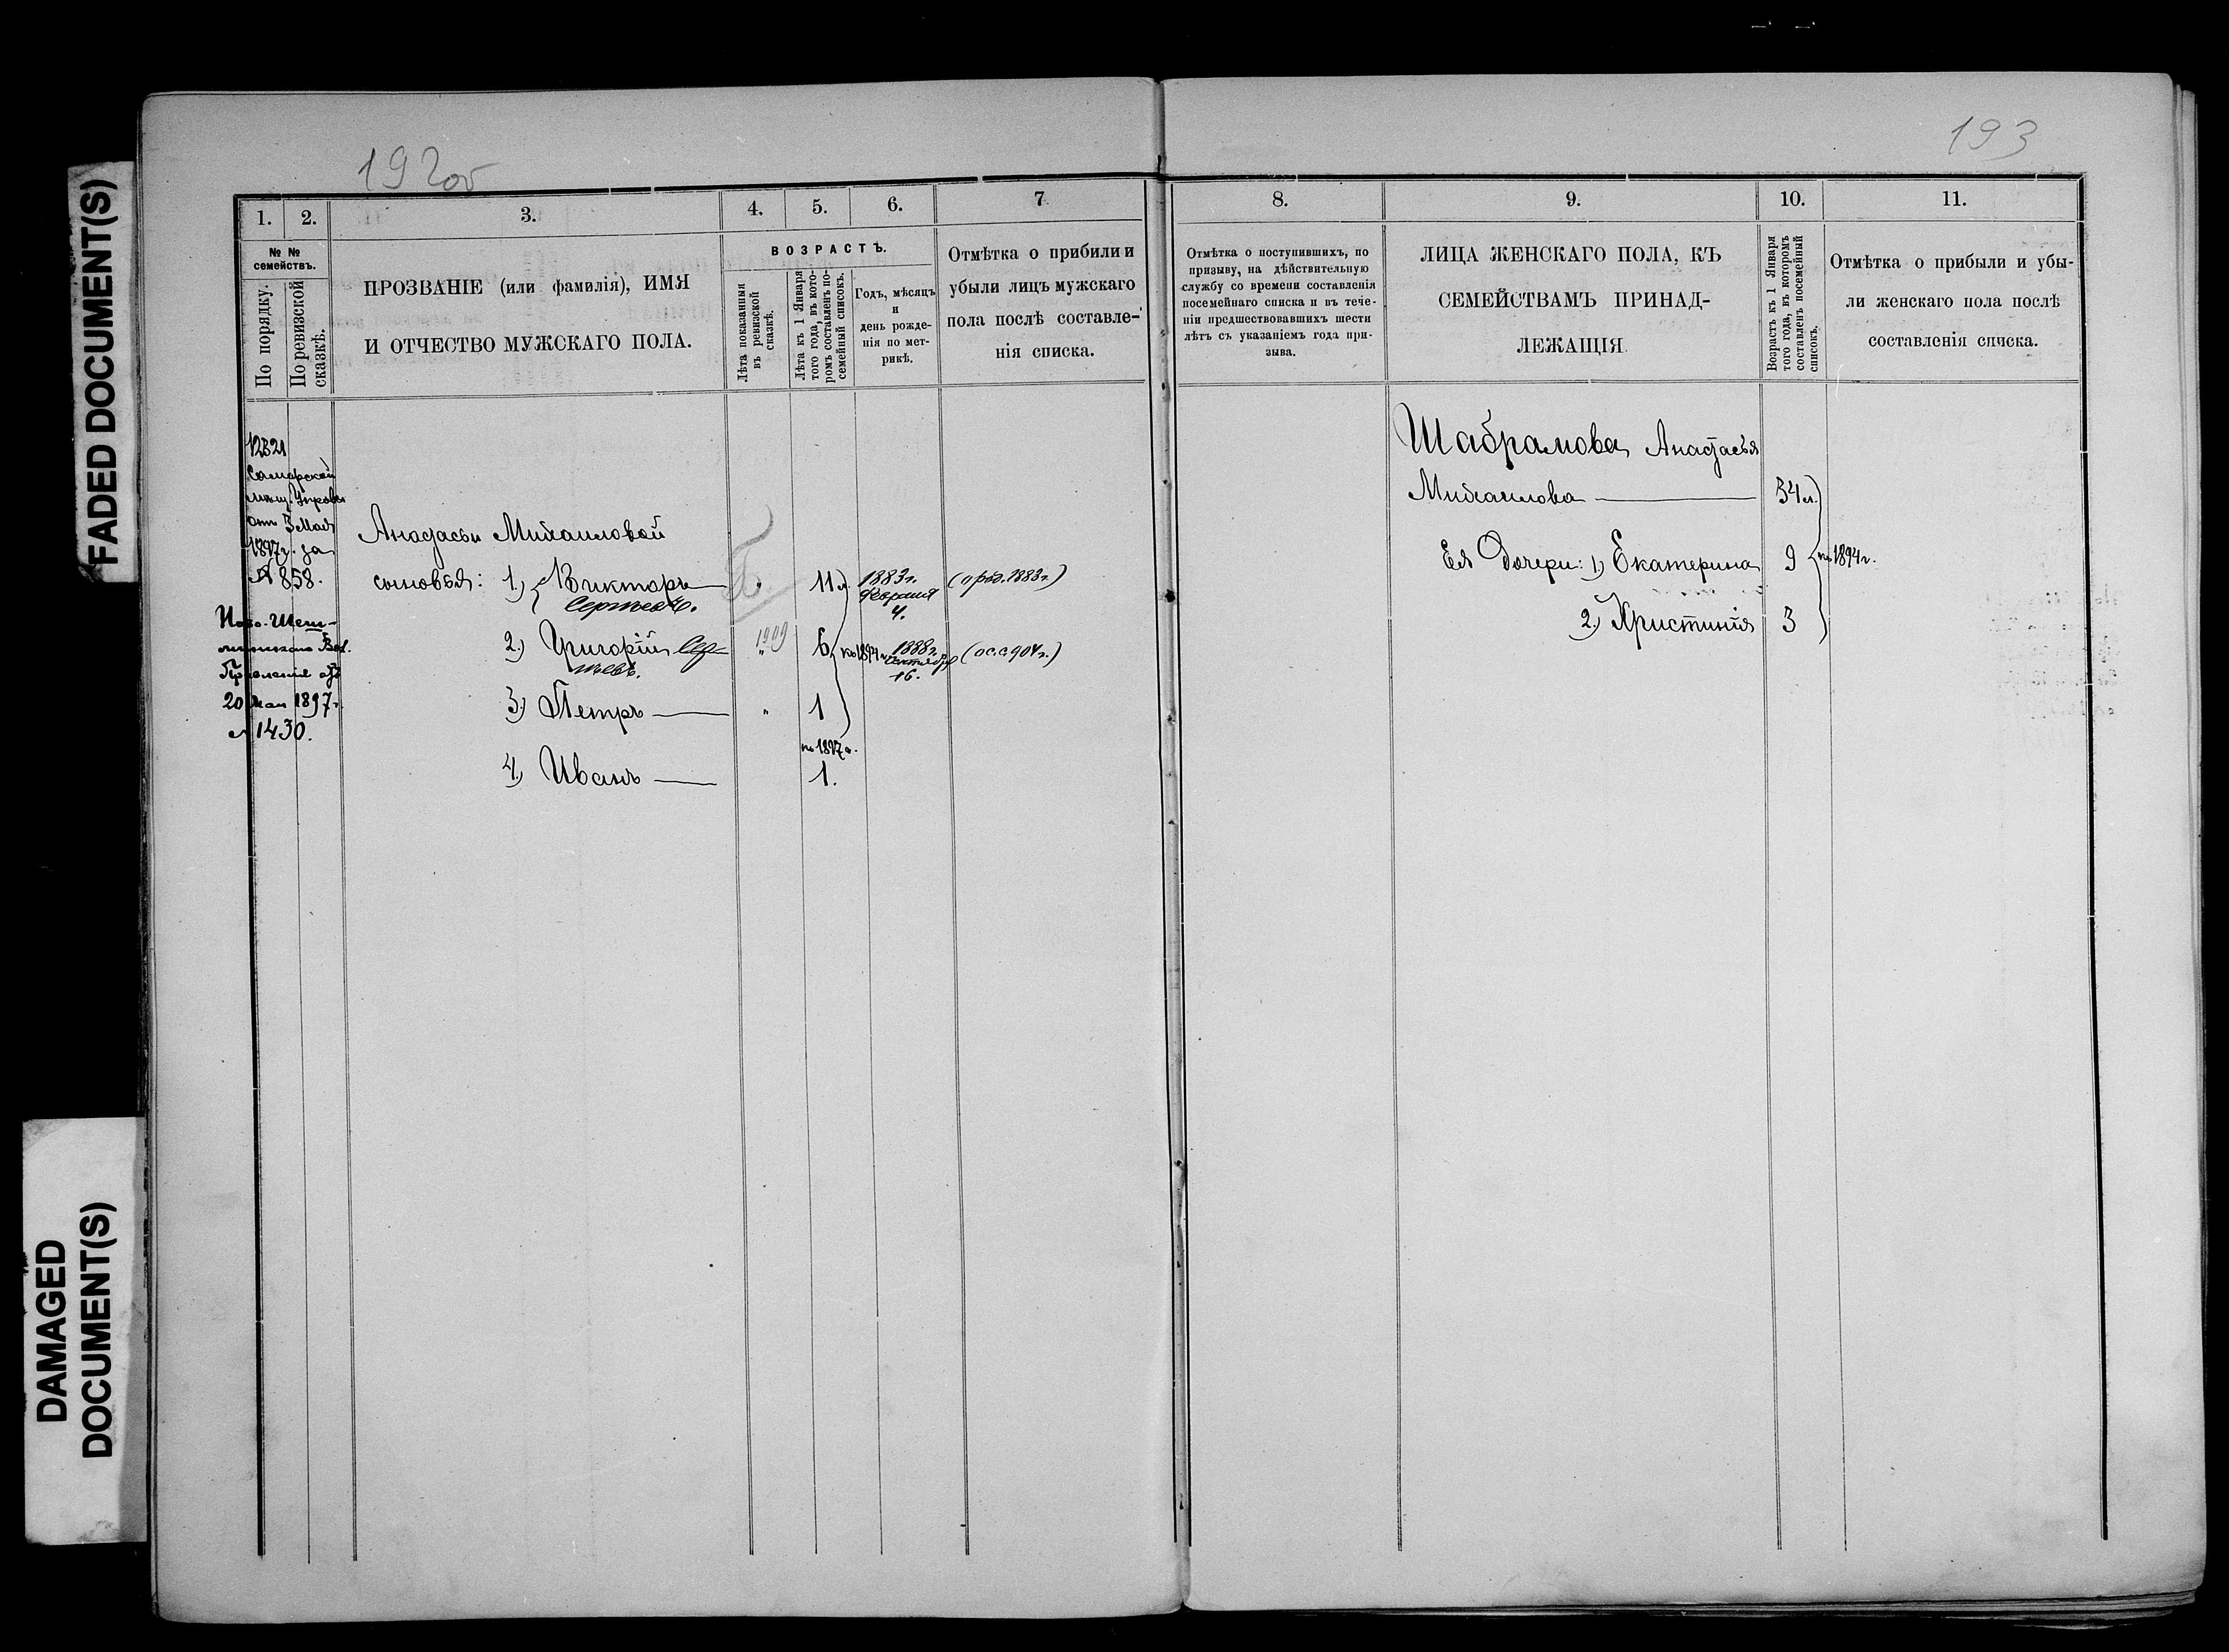 FADED DOCUMENT(S)
DAMAGED
DOCUMENT(S)
192об
1. 2. 3. 4. 5. 6. 7
№ №
семействъ.
По порядку.
По ревизской
сказкѣ.
ПРОЗВАНІЕ (или фамилія), ИМЯ
И ОТЧЕСТВО МУЖСКАГО ПОЛА.
ВОЗРАСТЪ.
Лѣта показанныя
въ ревизской
сказкѣ.
Лѣта къ 1 Января
того года, въ кото-
ромъ составленъ по-
семейный списокъ.
Годъ, мѣсяцъ
и
день рожде-
нія по мет-
рикѣ.
Отмѣтка о прибыли и
убыли лицъ мужскаго
пола послѣ составле-
нія списка.
Самарской
мѣщ. Управы
отъ 3 Мая
1897г. за
№ 858.
Ново-Шеш-
минскаго Вол.
Правленія отъ
20 Мая 1897г.
№ 1430.
Анастасьи Михаиловой
сыновья: 1) Викторъ " 11 л. 1883г. 1883г.)
Сергѣевъ. Февраля
4.
2) Григорій Сер- 1909 " 6 къ 1894г. 1888г.
гѣевъ. Сентября
16.
3) Петръ " 1
къ 1897г.
4) Иванъ 1.
193
8. 9. 10. 11.
Отмѣтка о поступившихъ, по
призыву, на дѣйствительную
службу со времени составленія
посемейнаго списка и въ тече-
ніи предшествовавшихъ шести
лѣтъ съ указаніемъ года при-
зыва.
ЛИЦА ЖЕНСКАГО ПОЛА, КЪ
СЕМЕЙСТВАМЪ ПРИНАД-
ЛЕЖАЩІЯ.
Возрастъ къ 1 Января
того года, въ которомъ
составленъ посемейный
списокъ.
Отмѣтка о прибыли и убы-
ли женскаго пола послѣ
составленія списка.
Шабрамова Анастасья
Михаилова 34 л.
Ея Дочери: 1) Екатерина 9 къ 1894г.
2) Христинія 3